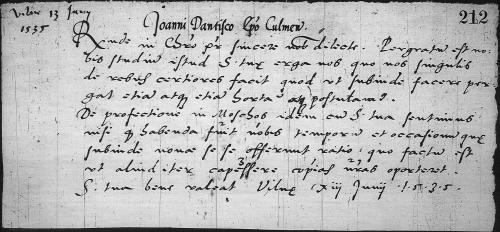 Vilne 13 Junij 212
1535 Joanni Dantisco Epo Culmen.
Rnde in Chro pr sincere nob dilecte. Pergratu est no-
bis studiu istud S. tuę erga nos quo nos singulis
de rebus certiores facit quod ut subinde facere per-
gat etia atq etia hortamr postulamus.
De profectione in Moschos idem cu S. tua sentimus
nisi q habenda sunt nobis temporu et occasionu quę
subinde novae se se offerunt ratio, quo factu est
ut aliud iter capessere copias nras oporteret.
S. tua bene valeat Vilnę XIII Junij 1535.